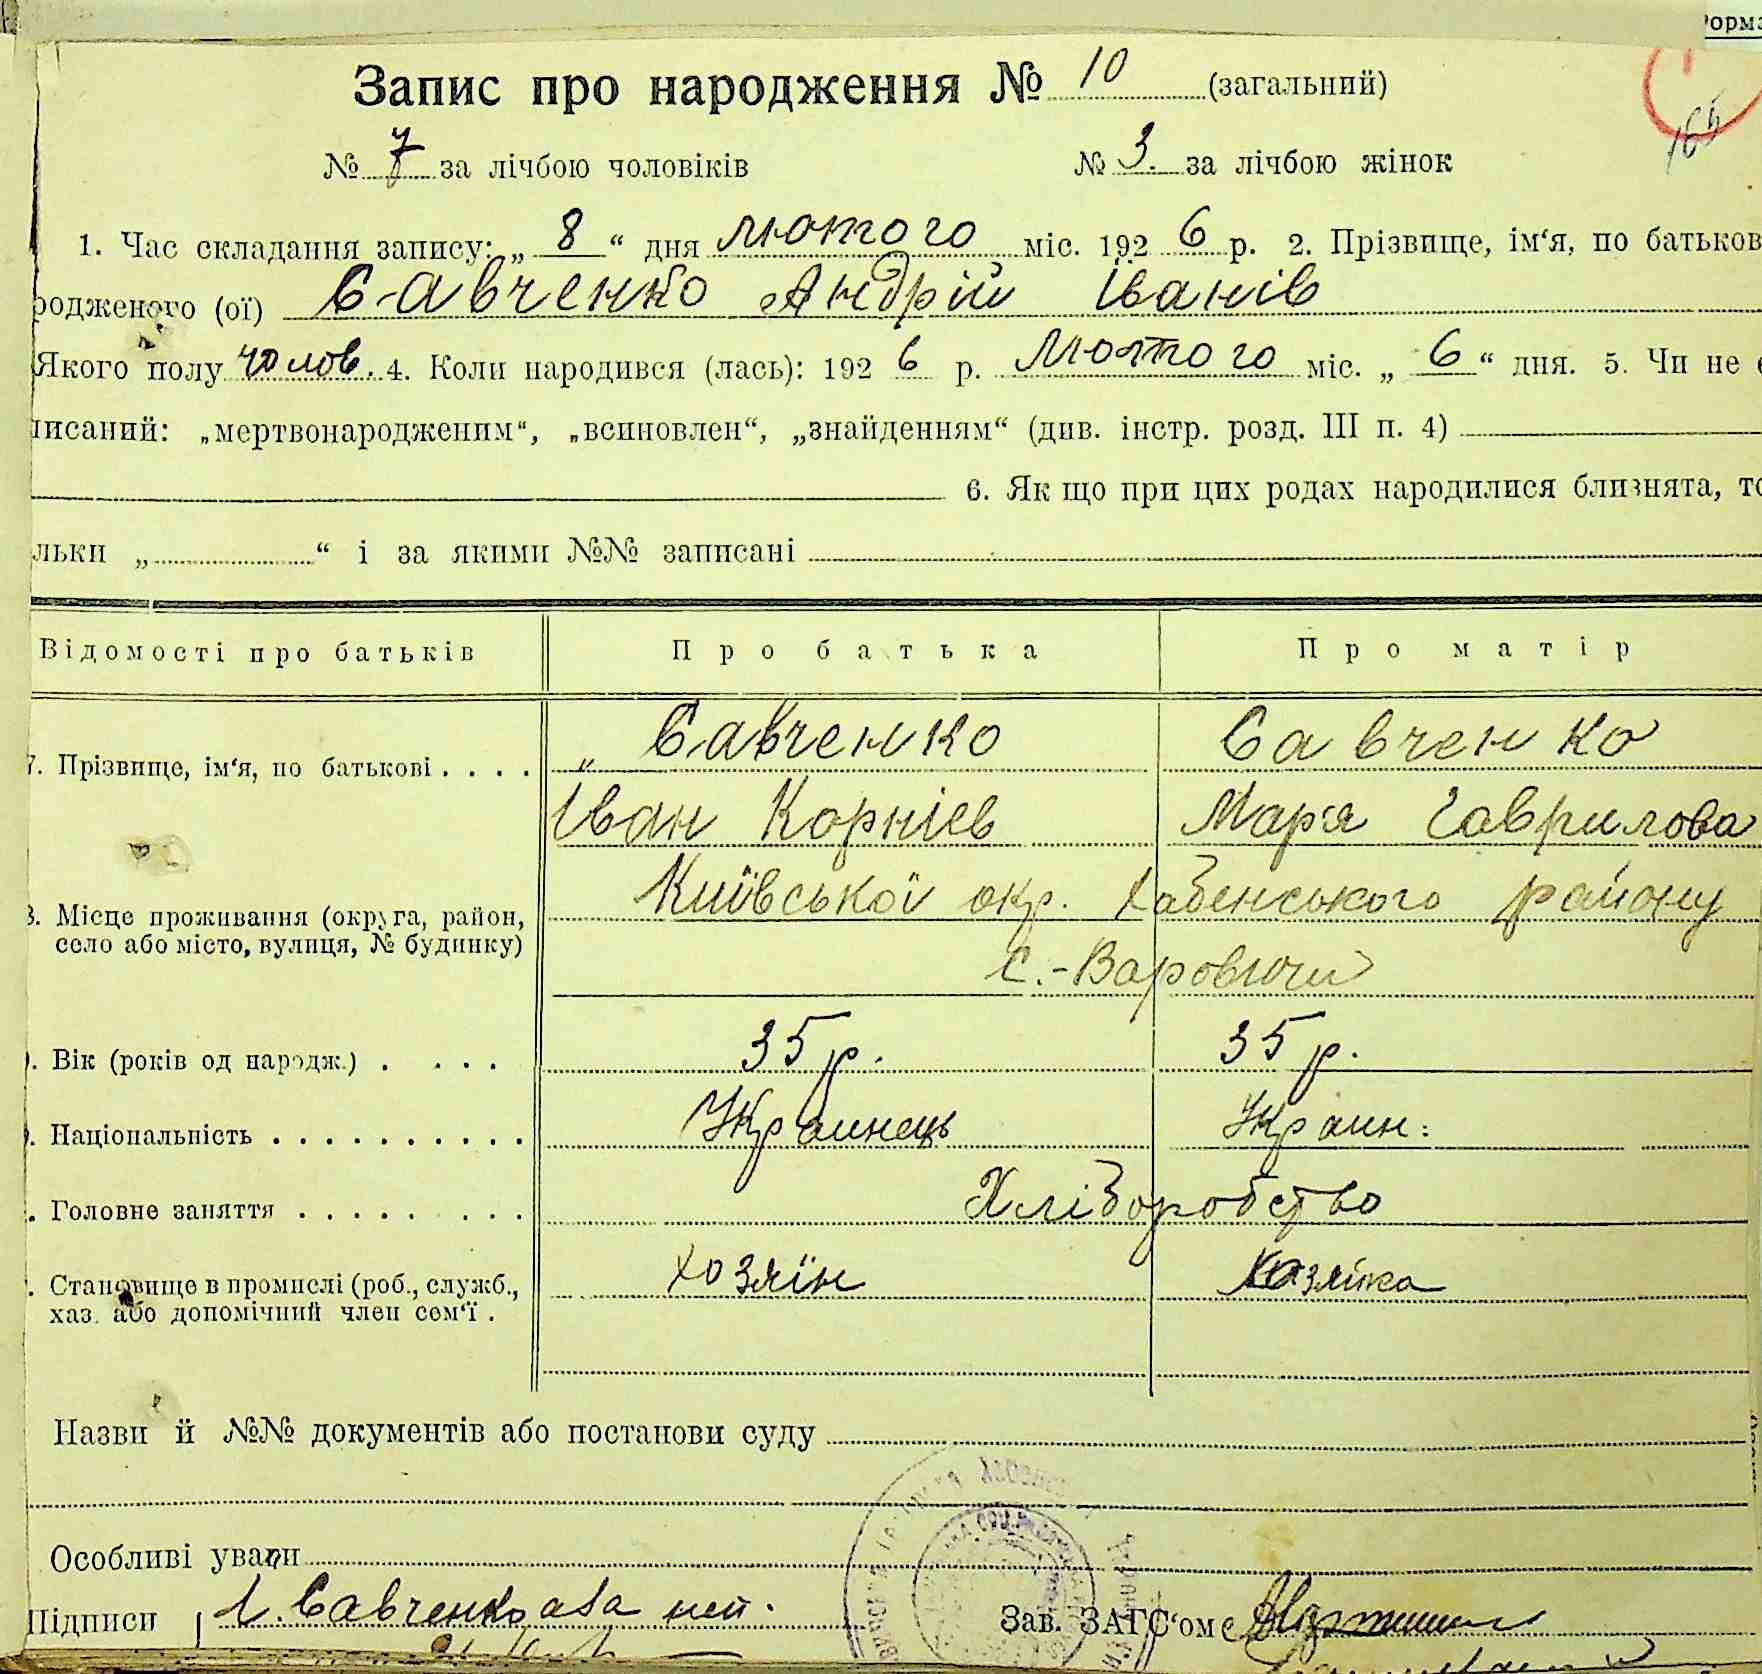 Запис про народження № 10 (загальний)
165
№ 7 за лічбою чоловіків № 3. за лічбою жінок
1. Час складання запису: „ 8 “ дня лютого міс. 192 6 р. 2. Прізвище, ім‘я, по батьков
родженого (ої) Савченко Андрій Іванів
Якого полу чолов. 4. Коли народився (лась): 192 6 р. Лютого міс. „ 6 “ дня. 5. Чи не є
писаний: „мертвонародженим“, „всиновлен“, „знайденням“ (див. інстр. розд. III п. 4)
6. Як що при цих родах народилися близнята, то
льки „ “ і за якими №№ записані
Відомості про батьків Про батька Про матір
7. Прізвище, ім‘я, по батькові . . . . „ Савченко Савченко
Іван Корніев Мар'я Гаврилова
8. Місце проживання (округа, район, село або місто, вулиця, № будинку) Київської окр. Хабенського району
с.-Варовичи
. Вік (років од народж.) . . . . 35 р. 35 р.
. Національність . . . . . . . . . . Украинець Украин:
. Головне заняття . . . . . . . . Хліборобство
. Становище в промислі (роб., служб., хаз. або допомічний член сем‘ї . хозяїн хозяйка
Назви й №№ документів або постанови суду
Особливі уваги
Підписи Савченко Зав. ЗАГС‘ом